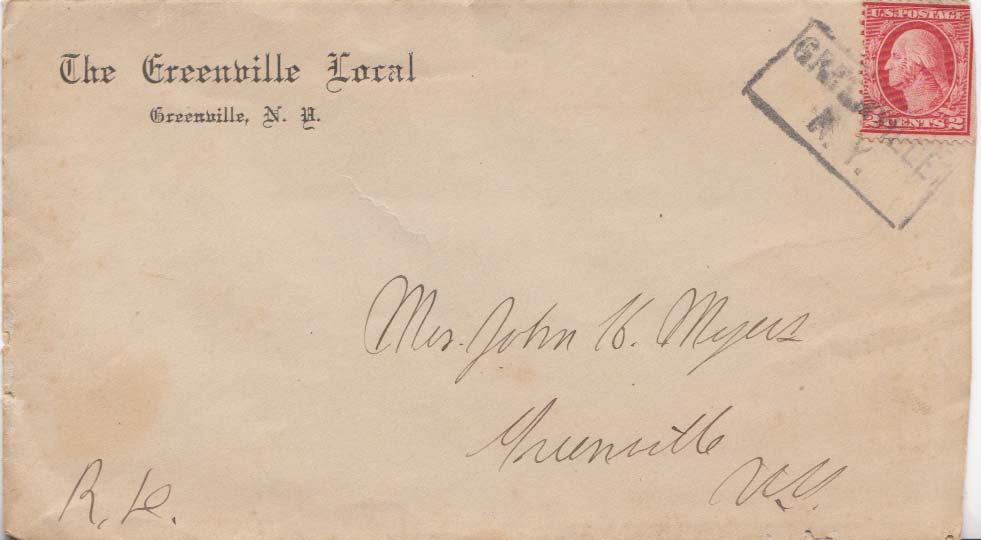 The Greenville Local
Greenville, N. Y.
U.S. POSTAGE
2 CENTS 2
GREENVILLE
N. Y.
Mrs. John K. Myers
Greenville
N.Y.
R.